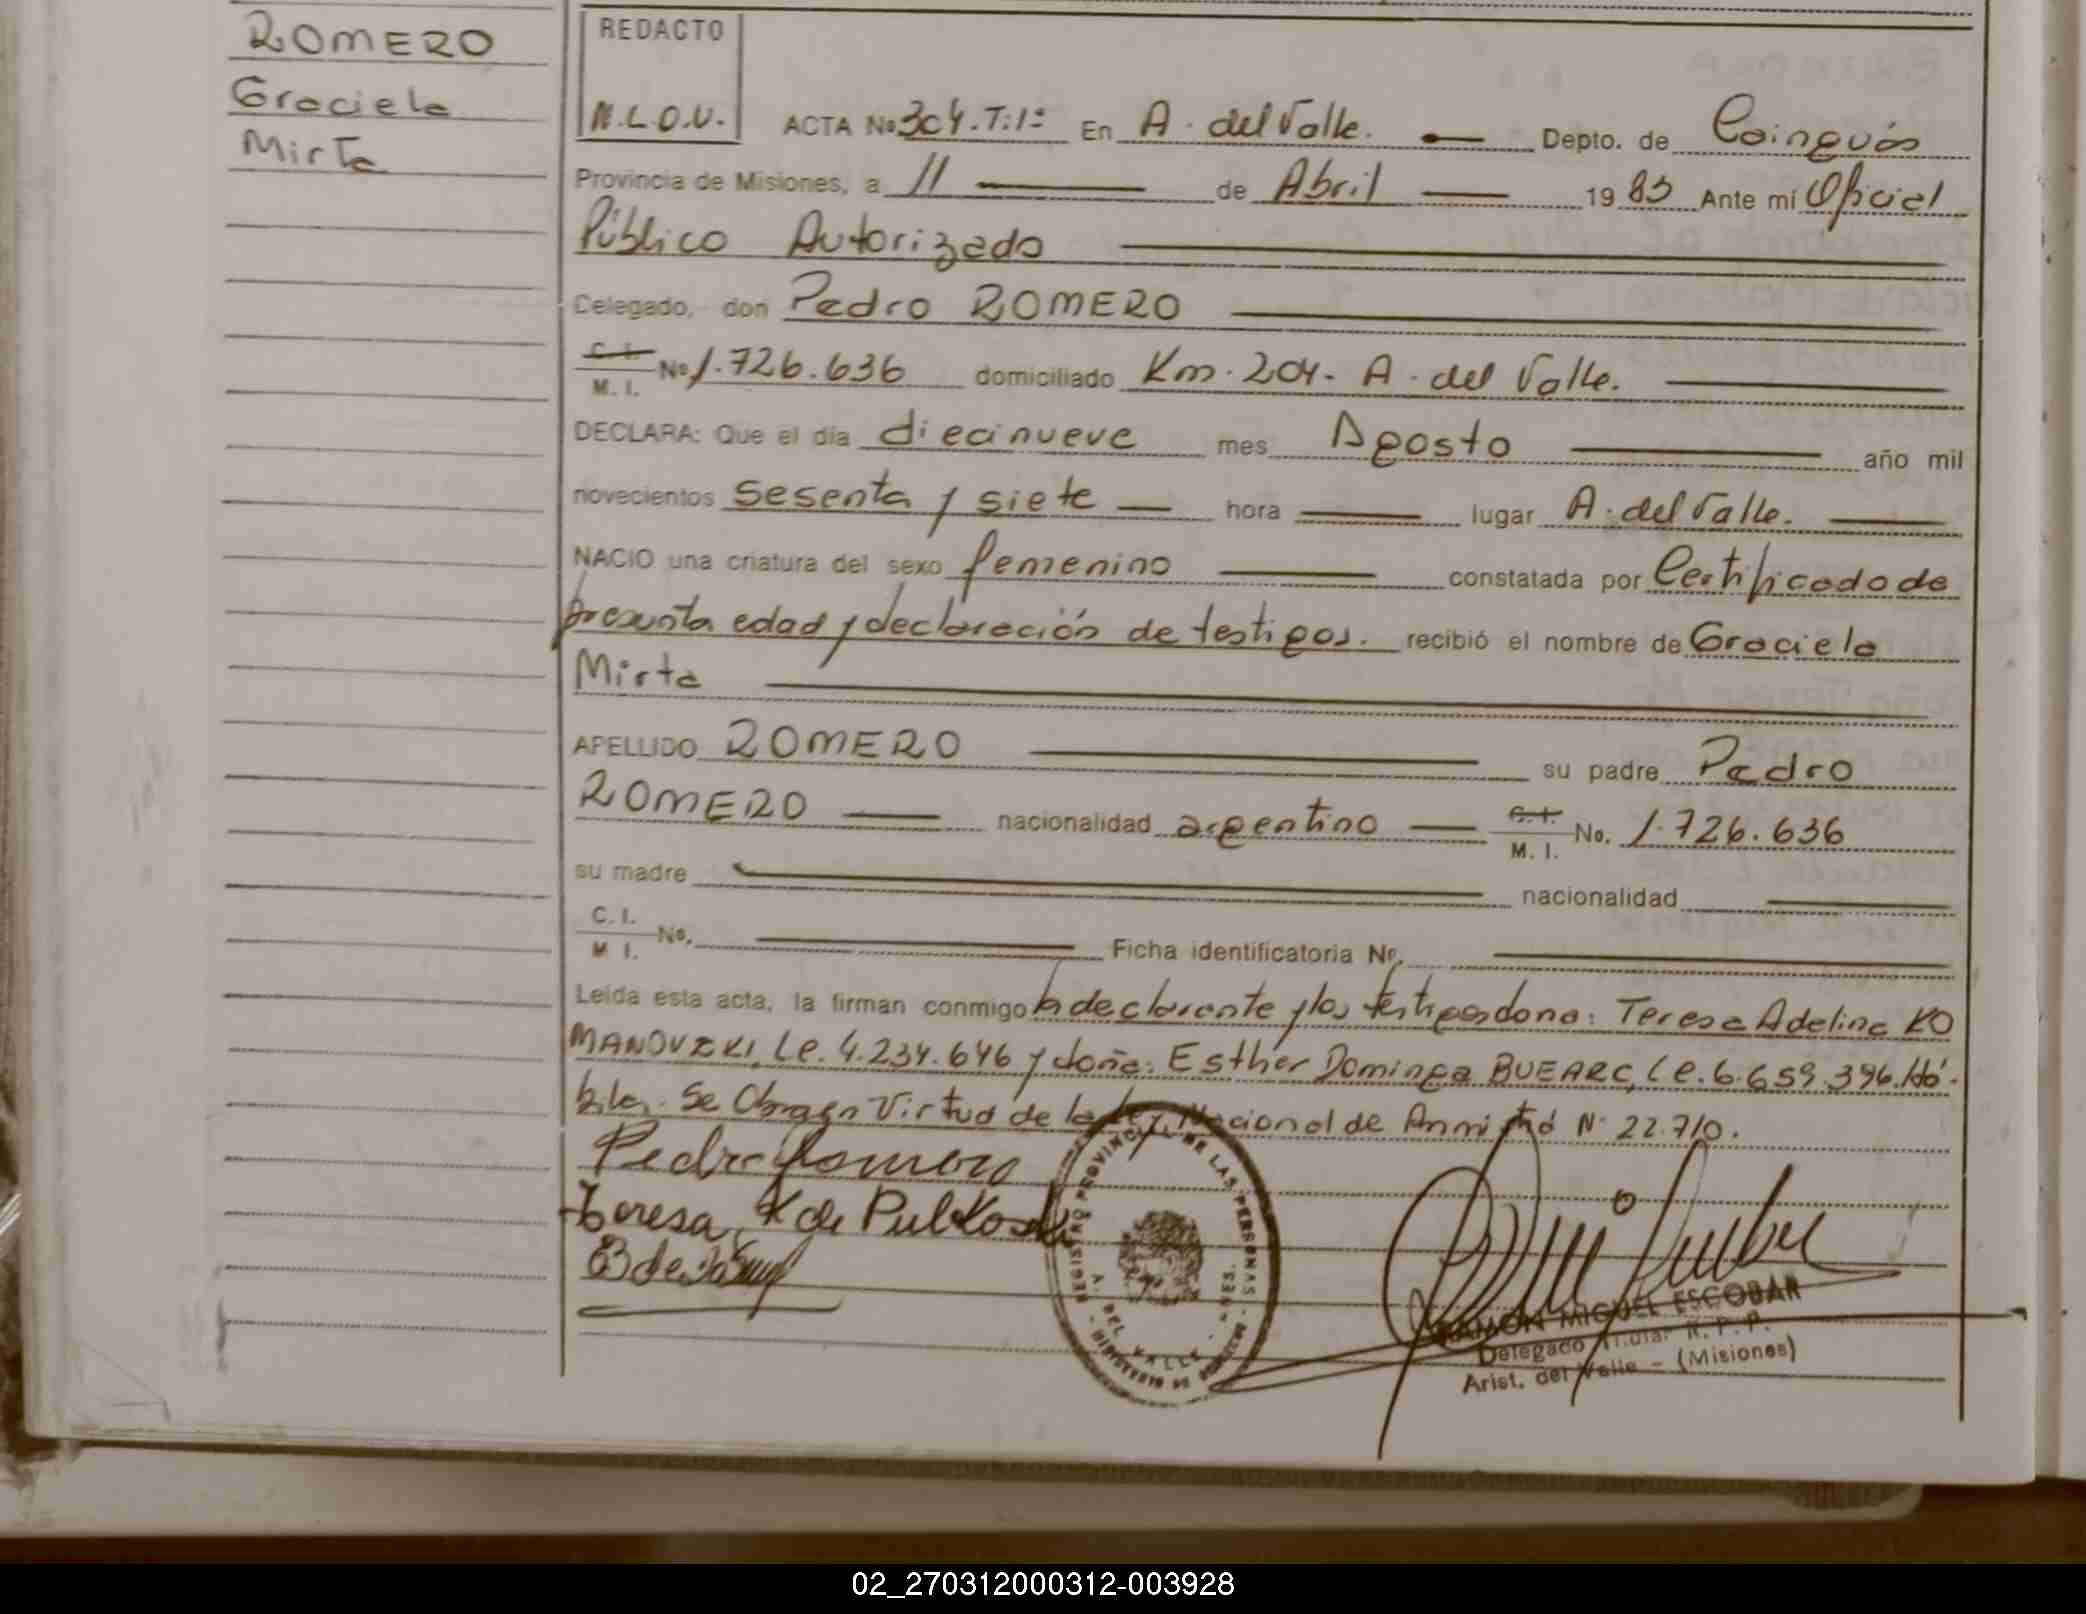 ROMERO
Graciela
Mirta
REDACTO
N.L.O.V.
ACTA No 304.T:1º En A. del Valle. Depto. de Cainguás
Provincia de Misiones, a 11 de Abril 1983 Ante mí Oficial
Público Autorizado
Delegado, don Pedro ROMERO
C. I. M. I. No 1.726.636 domiciliado Km. 204. A. del Valle.
DECLARA: Que el día diecinueve mes Agosto año mil
novecientos sesenta y siete hora lugar A. del Valle.
NACIO una criatura del sexo femenino constatada por Certificado de
presunta edad y declaración de testigos. recibió el nombre de Graciela
Mirta
APELLIDO ROMERO su padre Pedro
ROMERO nacionalidad argentino C. I. M. I. No. 1.726.636
su madre nacionalidad
C. I. M. I. No. Ficha identificatoria No.
Leída esta acta, la firman conmigo declarante y los testigos dona: Teresa Adelina KO
MANOVZKI, Le. 4.234.646 y doña: Esther Dominga BUEARC, Le. 6.659.396. Há-
biles. Se Obra en Virtud de la Ley Nacional de Amnistía N. 22.710.
Pedro Romero
Teresa K de Pulkoski
B de
REGISTRO PROVINCIAL DE LAS PERSONAS
A. DEL VALLE - MNES.
RAMON MIGUEL ESCOBAR
Delegado Titular R. P. P.
Arist. del Valle - (Misiones)
02_270312000312-003928